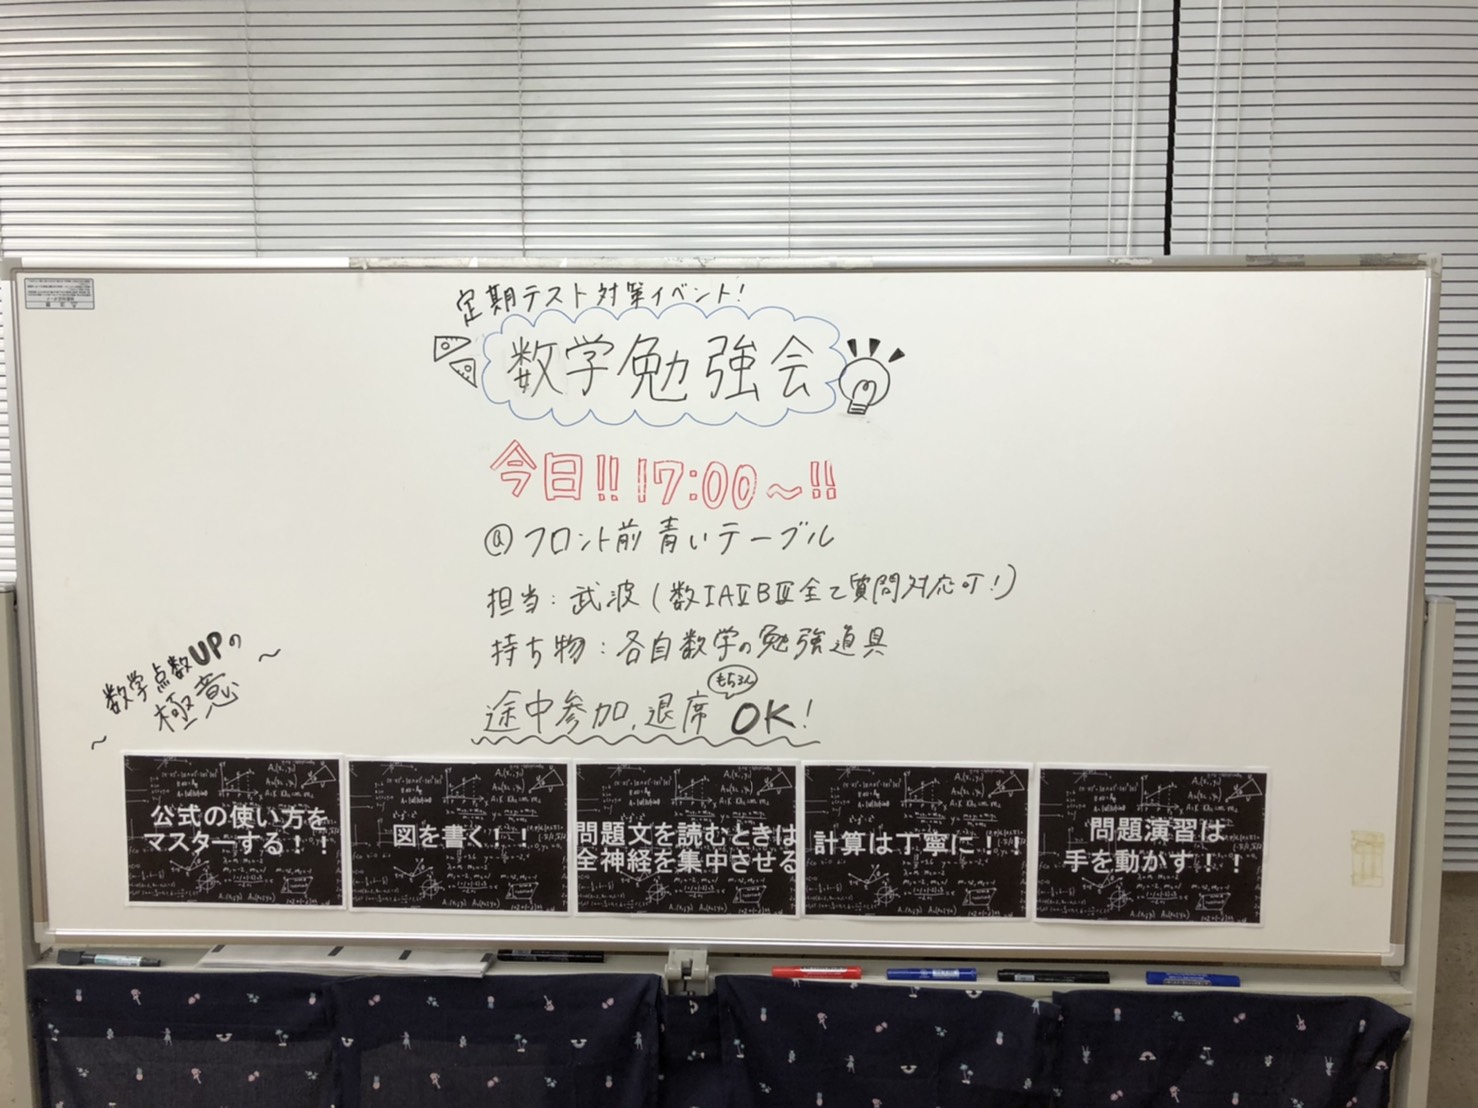 定期テスト対策イベント!
数学勉強会
今日!! 17:00〜!!
@フロント前 青いテーブル
担当: 武波 (数ⅠAⅡBⅢ全て質問対応可!)
持ち物: 各自数学の勉強道具
もちろん
途中参加, 退席 OK!
数学点数UPの
〜極意〜
公式の使い方を
マスターする！！
図を書く！！
問題文を読むときは
全神経を集中させる
計算は丁寧に！！
問題演習は
手を動かす！！